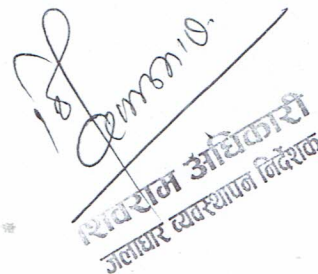 शिवराम अधिकारी
जलाधार व्यवस्थापन निर्देशक